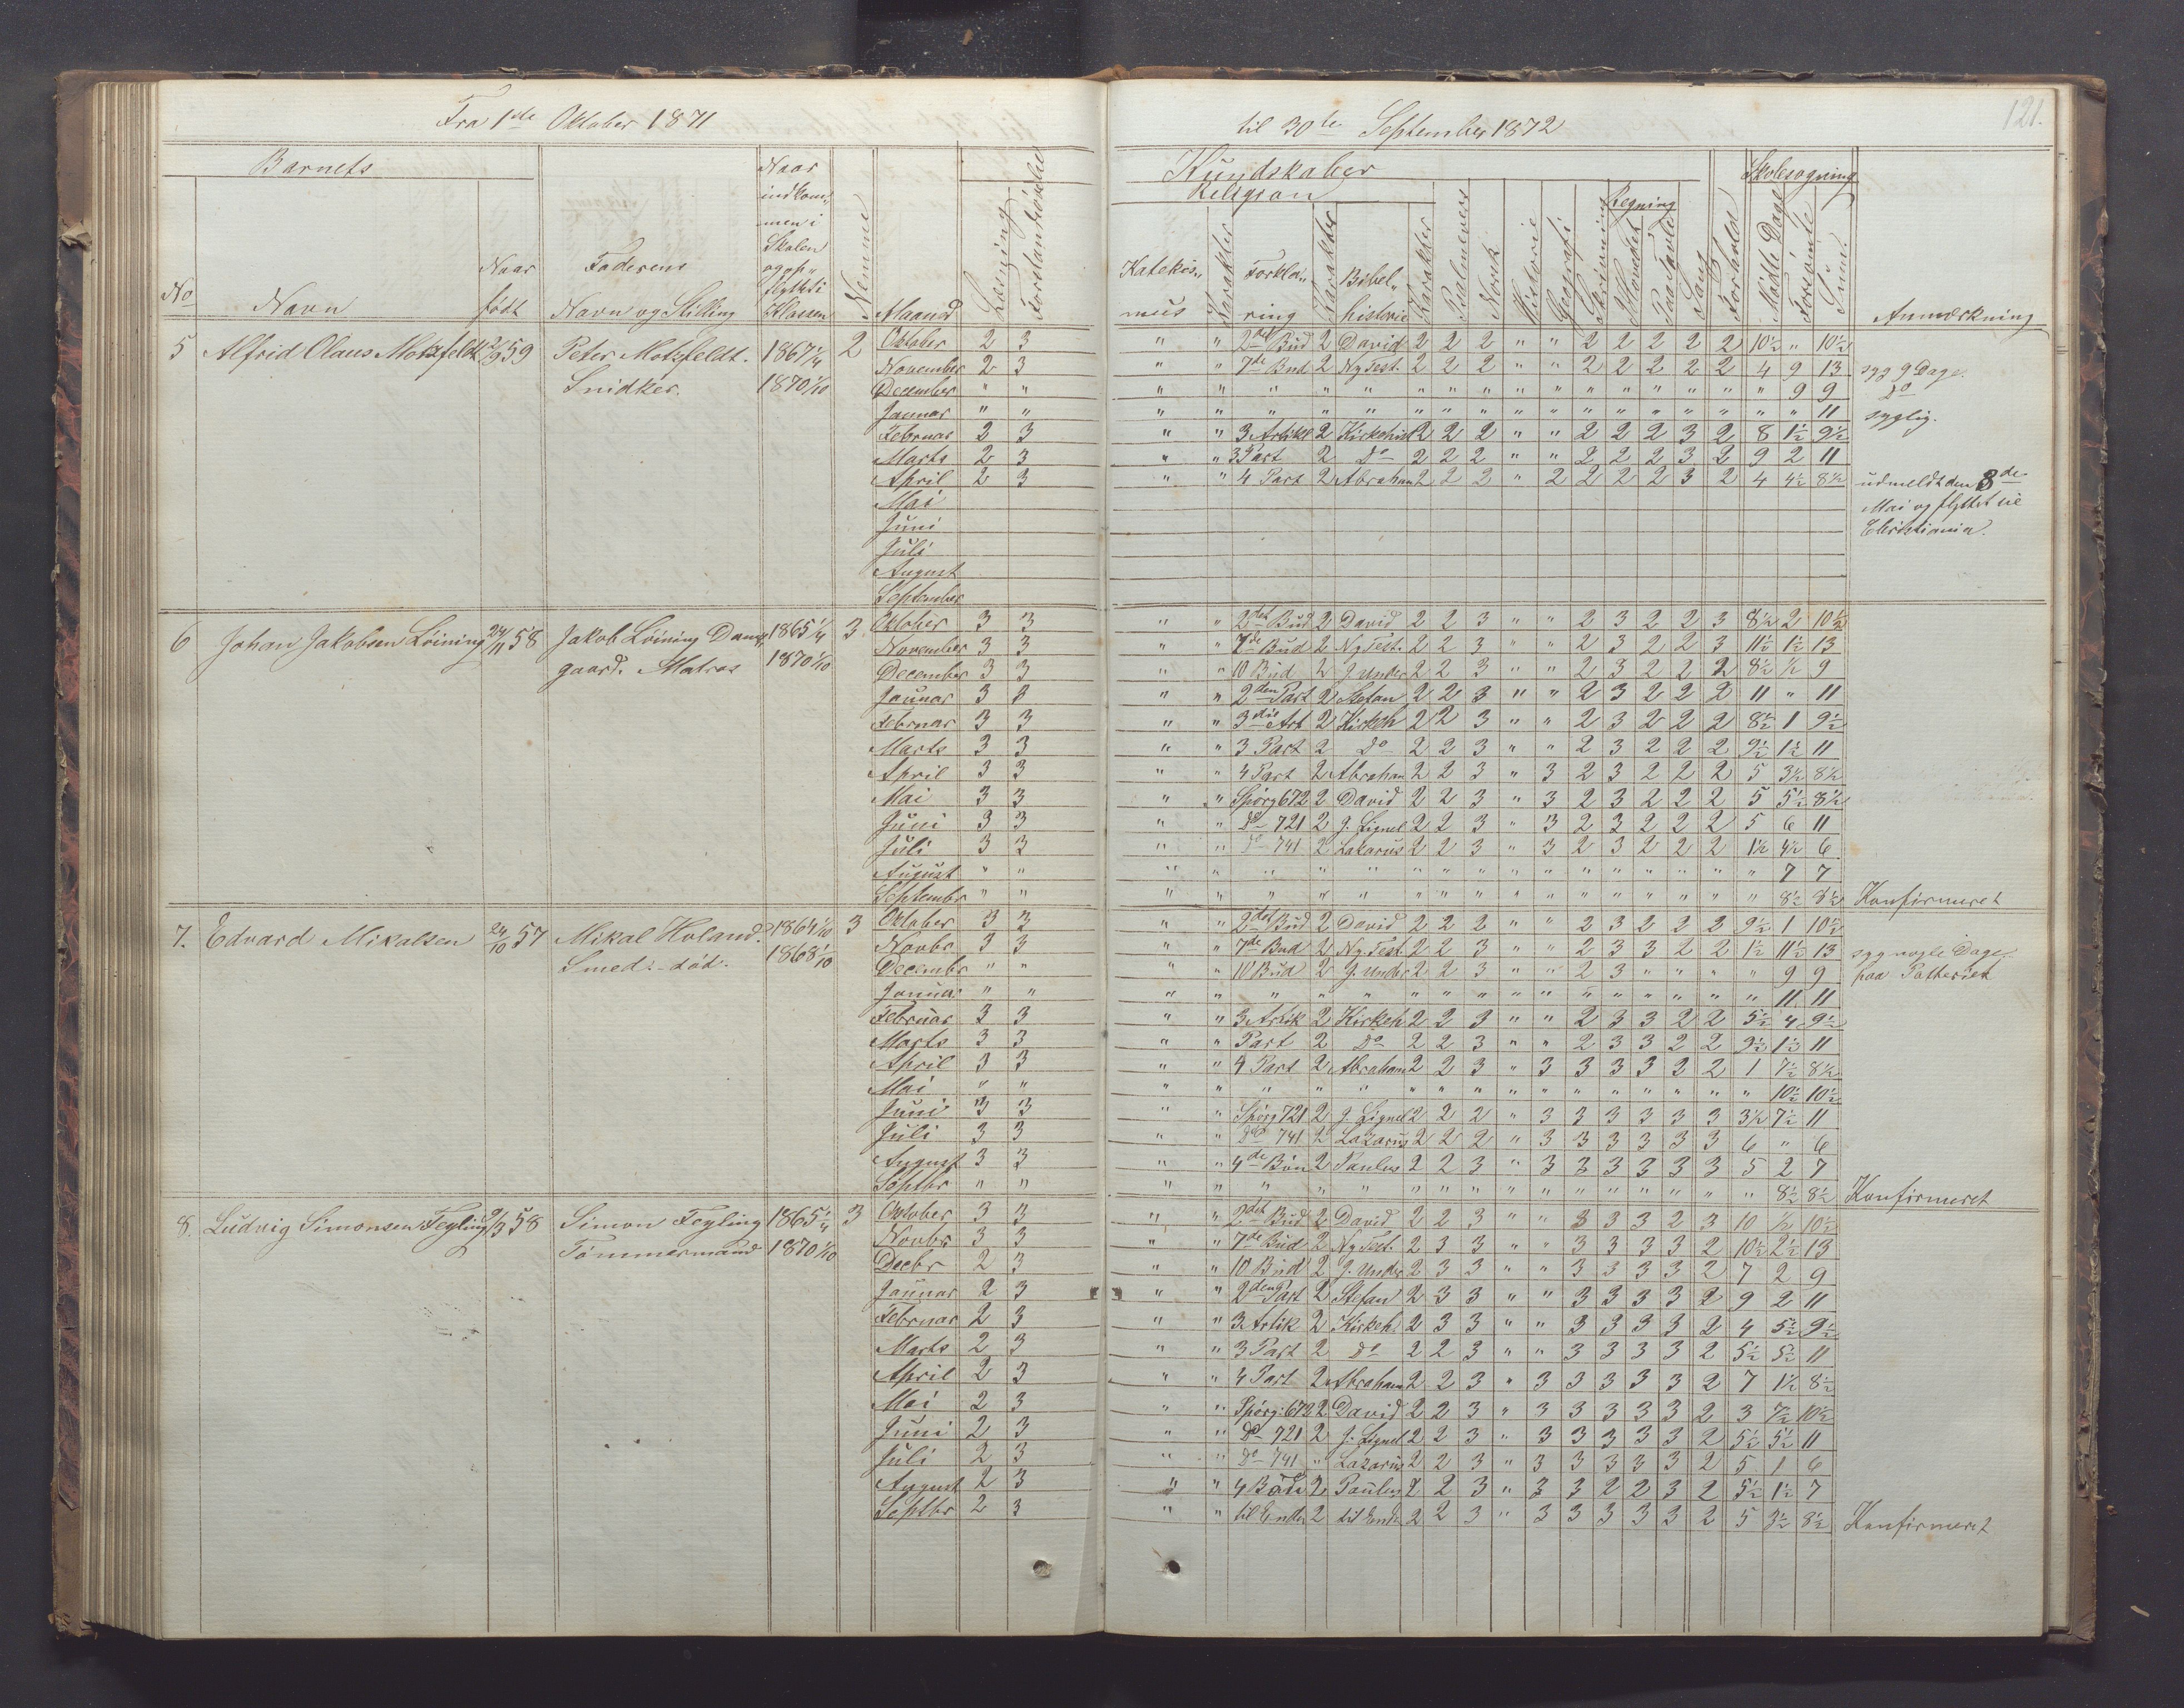 Fra 1ste Oktober 1871
til 30te September 1872
121.
Barnets
Kundskaber
Skolesøgning
Religion
Regning
No
Navn
Naar født
Faderens Navn og Stilling
Naar indkommen i Skolen og opflyttet i Klassen
Nemme
Maaned
Læsning
Forstandsøvelse
Katekismus
Karakter
Forklaring
Karakter
Bibelhistorie
Karakter
Psalmevers
Norsk
Historie
Geografi
Skrivning
I Hovedet
Paa Tavle
Sang
Forhold
Mødte Dage
Forsømte
Sum
Anmærkning
5 Alfrid Olaus Motzfeldt 2/9 59 Peter Motzfeldt. Snidker. 1867 1/4 1870 1/10 2
Oktober 2 3 " " 2det Bud 2 David 2 2 2 " " 2 2 2 2 2 10½ " 10½
November 2 3 " " 7de Bud 2 Ny Test. 2 2 2 " " 2 2 2 2 2 4 9 13 syg 9 Dage.
December " " " " " " " " " " " " " " " " " " " 9 9 Do
Januar " " " " " " " " " " " " " " " " " " " " 11 syglig.
Februar 2 3 " " 3 Artikel 2 Kirkehist 2 2 2 " " 2 2 2 3 2 8 1½ 9½
Marts 2 3 " " 3 Part 2 Do 2 2 2 " " 2 2 2 3 2 9 2 11
April 2 3 " " 4 Part 2 Abraham 2 2 2 " 2 2 2 2 3 2 4 4½ 8½ udmeldt den 8de
Mai Mai og flyttet til
Juni Christiania.
Juli
August
September
6 Johan Jakobsen Loining 24/11 58 Jakob Loining Damsgaard. Matros 1865 1/4 1870 1/10 3
Oktober 3 3 " " 2det Bud 2 David 2 2 3 " " 2 3 2 2 3 8½ 2 10½
November 3 3 " " 7de Bud 2 Ny Test. 2 2 3 " " 2 3 2 2 3 11½ 1½ 13
December 3 3 " " 10 Bud 2 J. Under 2 2 3 " " 2 3 2 2 2 8½ ½ 9
Januar 3 3 " " 2den Part 2 Stefan 2 2 3 " " 2 3 2 2 2 11 " 11
Februar 3 3 " " 3die Art 2 Kirkeh 2 2 3 " " 2 3 2 2 2 8½ 1 9½
Marts 3 3 " " 3 Part 2 Do 2 2 3 " " 2 3 2 2 2 9½ 1½ 11
April 3 3 " " 4 Part 2 Abraham 2 2 3 " 3 2 3 2 2 2 5 3½ 8½
Mai 3 3 " " Spørg 672 2 David 2 2 3 " 3 2 3 2 2 2 5 5½ 8½
Juni 3 3 " " Do 721 2 J. Lignel 2 2 3 " 3 2 3 2 2 2 5 6 11
Juli 3 3 " " Do 741 2 Lazarus 2 2 3 " 3 2 3 2 2 2 1½ 4½ 6
August " " " " " " " " " " " " " " " " " " " 7 7
September " " " " " " " " " " " " " " " " " " " 8½ 8½ Konfirmeret
7. Edvard Mikalsen 24/10 57 Mikal Holand. Smed. - död. 1864 1/10 1868 1/10 3
Oktober 3 3 " " 2det Bud 2 David 2 2 2 " " 2 3 2 2 2 9½ 1 10½
Novbr 3 3 " " 7de Bud 2 Ny Test. 2 2 3 " " 2 3 3 2 2 1½ 11½ 13 syg nogle Dage.
Decembr " " " " 10 Bud 2 J. Under 2 2 3 " " 2 3 " " " " 9 9 paa Fatteriet
Januar " " " " " " " " " " " " " " " " " " " 11 11
Februar 3 3 " " 3 Artik 2 Kirkeh 2 2 3 " " 2 3 3 2 2 5½ 4 9½
Marts 3 3 " " Part 2 Do 2 2 3 " " 2 3 3 2 2 9½ 1½ 11
April 3 3 " " 4 Part 2 Abraham 2 2 3 " 3 3 3 3 2 2 1 7½ 8½
Mai " " " " " " " " " " " " " " " " " " " 10½ 10½
Juni 3 3 " " Spørg 721 2 J. Lignel 2 2 2 " 3 3 3 3 3 3 3½ 7½ 11
Juli 3 3 " " Do 741 2 Lazarus 2 2 2 " 3 3 3 3 3 3 6 " 6
August 3 3 " " 4de Bön 2 Paulus 2 2 3 " 3 3 3 3 3 3 5 2 7
Septbr " " " " " " " " " " " " " " " " " " " 8½ 8½ Konfirmeret
8. Ludvig Simonsen Feyling 2/3 58 Simon Feyling Tömmermand 1865 1/4 1870 1/10 3
Oktober 3 3 " " 2det Bud 2 David 2 2 3 " " 3 3 3 2 3 10 ½ 10½
Novbr 3 3 " " 7de Bud 2 Ny Test. 2 3 3 " " 3 3 3 3 2 10½ 2½ 13
Decbr 2 3 " " 10 Bud 2 J. Under 2 3 3 " " 3 3 3 3 2 7 2 9
Januar 2 3 " " 2den Part 2 Stefan 2 3 3 " " 3 3 3 3 2 9 2 11
Februar 2 3 " " 3 Artik 2 Kirkeh. 2 3 3 " " 3 3 3 3 2 4 5½ 9½
Marts 2 3 " " 3 Part 2 Do 2 2 3 " " 3 3 3 3 2 5½ 5½ 11
April 2 3 " " 4 Part 2 Abraham 2 2 3 " 3 3 3 3 3 2 7 1½ 8½
Mai 2 3 " " Spørg. 672 2 David 2 2 3 " 3 3 3 3 3 2 3 7½ 10½
Juni 2 3 " " Do 721 2 J. Lignel 2 2 3 " 3 3 3 3 3 2 5½ 5½ 11
Juli 2 3 " " Do 741 " Lazarus 2 2 3 " 3 3 3 3 3 2 5 1 6
August 2 3 " " 4 Bön 2 Paulus 2 2 3 " 3 3 2 2 3 2 5½ 1½ 7
Septbr 2 3 " " til Enden 2 til Enden 2 2 3 " 3 3 3 3 3 2 5 3½ 8½ Konfirmeret